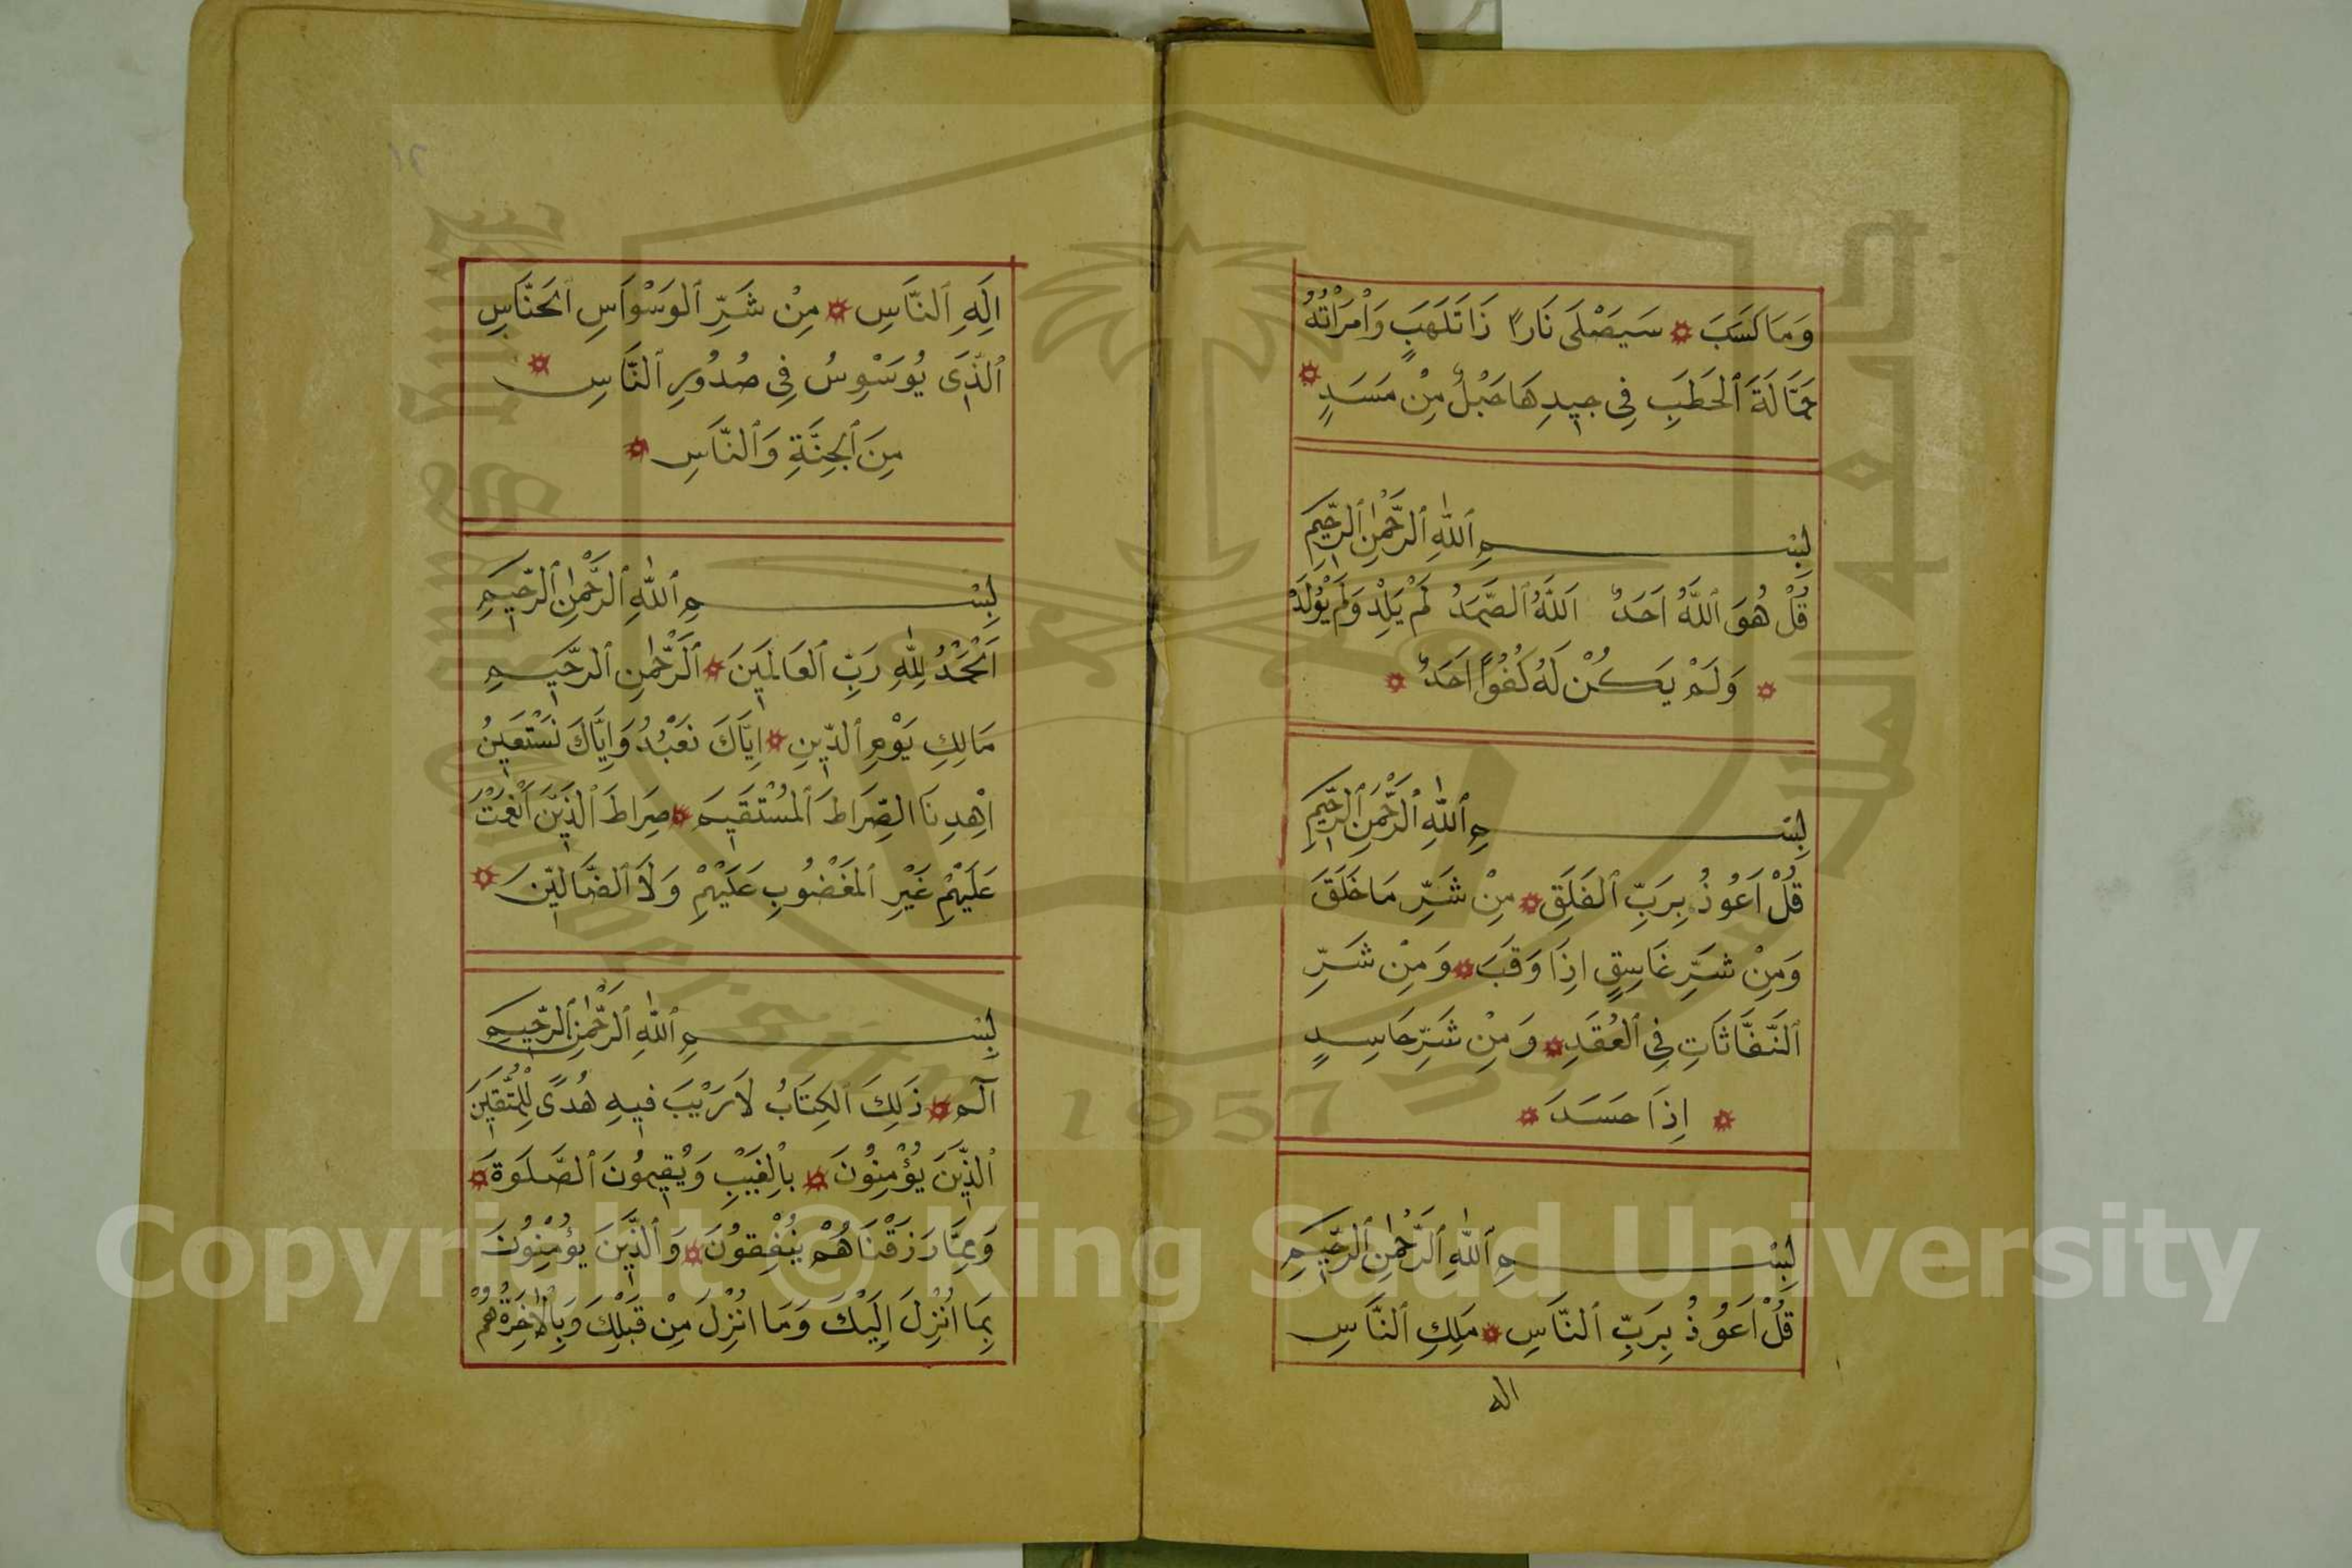 وَمَا كَسَبَ سَيَصْلَى نَارًا ذَاتَ لَهَبٍ وَامْرَأَتُهُ
حَمَّالَةَ الْحَطَبِ فِي جِيدِهَا حَبْلٌ مِنْ مَسَدٍ
بِسْمِ اللهِ الرَّحْمٰنِ الرَّحِيمِ
قُلْ هُوَ اللهُ اَحَدٌ اَللهُ الصَّمَدُ لَمْ يَلِدْ وَلَمْ يُولَدْ
وَلَمْ يَكُنْ لَهُ كُفُوًا اَحَدٌ
بِسْمِ اللهِ الرَّحْمٰنِ الرَّحِيمِ
قُلْ اَعُوذُ بِرَبِّ الْفَلَقِ مِنْ شَرِّ مَا خَلَقَ
وَمِنْ شَرِّ غَاسِقٍ اِذَا وَقَبَ وَمِنْ شَرِّ
النَّفَّاثَاتِ فِي الْعُقَدِ وَمِنْ شَرِّ حَاسِدٍ
اِذَا حَسَدَ
بِسْمِ اللهِ الرَّحْمٰنِ الرَّحِيمِ
قُلْ اَعُوذُ بِرَبِّ النَّاسِ مَلِكِ النَّاسِ
اله
١٢
اِلَهِ النَّاسِ مِنْ شَرِّ الْوَسْوَاسِ الْخَنَّاسِ
الَّذِي يُوَسْوِسُ فِي صُدُورِ النَّاسِ
مِنَ الْجِنَّةِ وَالنَّاسِ
بِسْمِ اللهِ الرَّحْمٰنِ الرَّحِيمِ
اَلْحَمْدُ لِلّٰهِ رَبِّ الْعَالَمِينَ اَلرَّحْمٰنِ الرَّحِيمِ
مَالِكِ يَوْمِ الدِّينِ اِيَّاكَ نَعْبُدُ وَاِيَّاكَ نَسْتَعِينُ
اِهْدِنَا الصِّرَاطَ الْمُسْتَقِيمَ صِرَاطَ الَّذِينَ اَنْعَمْتَ
عَلَيْهِمْ غَيْرِ الْمَغْضُوبِ عَلَيْهِمْ وَلَا الضَّالِّينَ
بِسْمِ اللهِ الرَّحْمٰنِ الرَّحِيمِ
آلم ذَلِكَ الْكِتَابُ لَا رَيْبَ فِيهِ هُدًى لِلْمُتَّقِينَ
الَّذِينَ يُؤْمِنُونَ بِالْغَيْبِ وَيُقِيمُونَ الصَّلَوةَ
وَمِمَّا رَزَقْنَاهُمْ يُنْفِقُونَ وَالَّذِينَ يُؤْمِنُونَ
بِمَا اُنْزِلَ اِلَيْكَ وَمَا اُنْزِلَ مِنْ قَبْلِكَ وَبِالْاٰخِرَةِ هُمْ
Copyright © King Saud University
1957